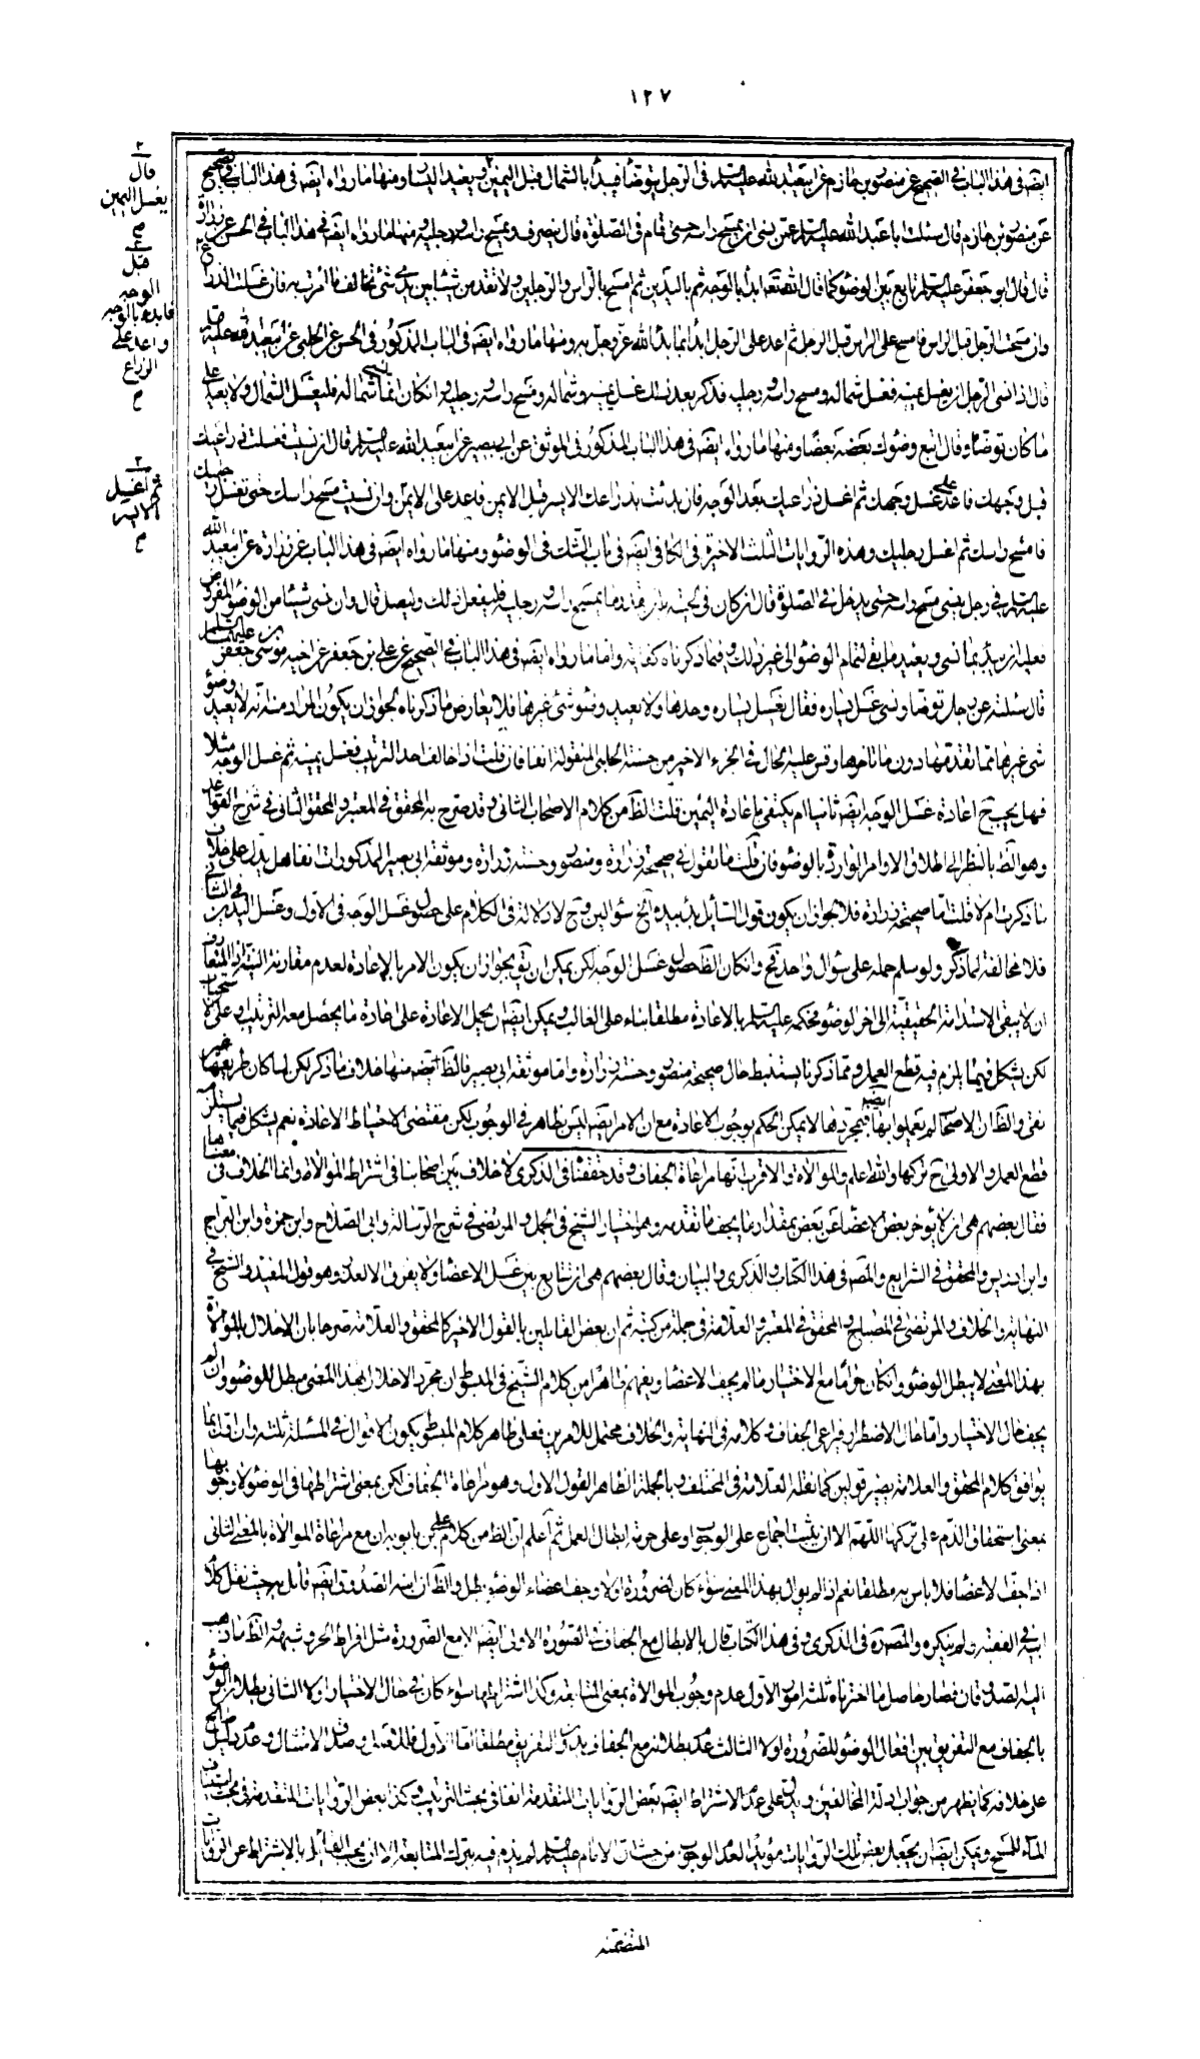 ١٢٧
ايضه في هذا الباب في الصحيح عن منصور بن حازم عن ابيعبد الله عليه السلام في الرجل يتوضأ فيبدأ بالشمال قبل اليمين ويعيد اليسار ومنها ما رواه ايضه في هذا الباب في الصحيح
عن منصور بن حازم قال سئلت ابا عبد الله عليه السلام عمن نسى ان يمسح راسه حتى قام في الصلوة قال ينصرف ويمسح راسه ورجليه ومنها ما رواه ايضه في هذا الباب في الحسن عن زرارة
قال قال ابو جعفر عليه السلام تابع بين الوضوء كما قال الله تعه ابدأ بالوجه ثم باليدين ثم امسح بالراس والرجلين ولا تقدمن شيئا بين يدي شئ تخالف ما امرت به فان غسلت الذراع
وان مسحت الرجل قبل الراس فامسح على الراس قبل الرجل ثم اعد على الرجل ابدأ بما بدأ الله عز وجل به ومنها ما رواه ايضه في الباب المذكور في الحسن عن الحلبي عن ابيعبد الله عليه
قال اذا نسى الرجل ان يغسل يمينه فغسل شماله ومسح راسه ورجليه فذكر بعد ذلك غسل يمينه وشماله ومسح راسه ورجليه وان كان انما نسى شماله فليغسل الشمال ولا يعيد على
ما كان توضأ وقال اتبع وضوئك بعضه بعضا ومنها ما رواه ايضه في هذا الباب المذكور في الموثق عن ابي بصير عن ابيعبد الله عليه السلام قال ان نسيت فغسلت ذراعيك
قبل وجهك فاعد على غسل وجهك ثم اغسل ذراعيك بعد الوجه فان بدئت بذراعك الايسر قبل الايمن فاعد على الايمن وان نسيت مسح راسك حتى تغسل رجليك
فامسح راسك ثم اغسل رجليك وهذه الروايات الثلث الاخيرة في الكافي ايضه في باب الشك في الوضوء ومنها ما رواه ايضه في هذا الباب عن زرارة عن ابيعبد الله
عليه السلام في رجل ينسى مسح راسه حتى يدخل في الصلوة قال ان كان في لحيته بلل بقدر ما يمسح راسه ورجليه فليفعل ذلك وليصل قال وان نسى شيئا من الوضوء المفروض
فعليه ان يبدأ بما نسى ويعيد ما بقى لتمام الوضوء الى غير ذلك وفيما ذكرناه كفاية واما ما رواه ايضه في هذا الباب في الصحيح عن علي بن جعفر عن اخيه موسى بن جعفر عليهما السلم
قال سئلته عن رجل توضأ ونسى غسل يساره فقال يغسل يساره وحدها ولا يعيد وضوء شئ غيرها فلا يعارض ما ذكرناه لجواز ان يكون المراد منه انه لا يعيد وضوء
شئ غيرها مما تقدمها دون ما تاخرها وقس عليه الحال في الجزء الاخير من حسنة الحلبي المنقولة انفا فان قلت اذا خالف احد الترتيب فغسل يمينه ثم غسل الوجه مثلا
فهل يجب ح اعادة غسل الوجه ايضه ثانيا ام يكتفى باعادة اليمين قلت الظ من كلام الاصحاب الثاني وقد صرح به المحقق في المعتبر والمحقق الثاني في شرح القواعد
وهو الظ بالنظر الى اطلاق الاوامر الواردة بالوضوء فان قلت ما تقول في صحيحة زرارة ومنصور وحسنة زرارة وموثقة ابي بصير المذكورات انفا هل يدل على خلاف
ما ذكرت ام لا قلت اما صحيحة زرارة فلا لجواز ان يكون قول السائل بدئ بيده الخ سؤالين وح لا دلالة في الكلام على حصول غسل الوجه في الاول وغسل اليدين في الثاني
فلا مخالفة لما ذكر ولو سلم حمله على سؤال واحد فح وان كان الظ حصول غسل الوجه لكن يمكن ان يقو بجواز ان يكون الامر بالاعادة لعدم مقارنة النية اذ المتعارف
ان لا يبقى الاستدامة الحقيقية الى اخر الوضوء فحكمه عليه السلام بالاعادة مطلقا بناء على الغالب ويمكن ايضه ان يحمل الاعادة على اعادة ما يحصل معه الترتيب وعلى الاستحباب
لكن يشكل فيما يلزم فيه قطع العمل ومما ذكرنا يستنبط حال صحيحة منصور وحسنة زرارة واما موثقة ابي بصير فالظ ايضه منها خلاف ما ذكر لكن لما كان طريقها غير
نقي والظ ان الاصحاب لم يعملوا بها ايضه فبمجردها لا يمكن الحكم بوجوب الاعادة مع ان الامر ايضه ليس بظاهر في الوجوب لكن مقتضى الاحتياط الاعادة نعم يشكل فيما يستلزم
قطع العمل والاولى ح تركها والله اعلم والموالاة والاقرب انها مراعاة الجفاف وقد حققنا في الذكرى لا خلاف بين اصحابنا في اشتراط الموالاة وانما الخلاف في معناها
فقال بعضهم هي ان لا يؤخر بعض الاعضاء عن بعض بمقدار ما يجف ما تقدمه وهو اختيار الشيخ في الجمل والمرتضى في شرح الرسالة وابي الصلاح وابن حمزة وابن البراج
وابن ادريس والمحقق في الشرايع والمصه في هذا الكتاب والذكرى والبيان وقال بعضهم هي ان يتابع بين غسل الاعضاء ولا يفرق الا لعذر وهو قول المفيد والشيخ في
النهاية والخلاف والمرتضى في المصباح والمحقق في المعتبر والعلامة في جملة من كتبه ثم ان بعض القائلين بالقول الاخير كالمحقق والعلامة صرحا بان الاخلال بالموالاة
بهذا المعنى لا يبطل الوضوء وان كان حراما مع الاختيار ما لم يجف الاعضاء ويفهم ظاهرا من كلام الشيخ في المبسوط ان مجرد الاخلال بهذا المعنى مبطل للوضوء وان لم
يجف حال الاختيار واما حال الاضطرار فيراعى الجفاف وكلامه في النهاية والخلاف محتمل للامرين فعلى ظاهر كلام المبسوط يكون الاقوال في المسئلة ثلثة وان قلنا بما
يوافق كلام المحقق والعلامة يصير قولين كما نقله العلامة في المختلف وبالجملة الظاهر القول الاول وهو مراعاة الجفاف لكن بمعنى اشتراطها في الوضوء لا وجوبها
بمعنى استحقاق الذم على تركها اللهم الا ان يثبت اجماع على الوجوب او على حرمة ابطال العمل ثم اعلم ان الظ من كلام علي بن بابويه ان مع مراعاة الموالاة بالمعنى الثاني
اذا جف الاعضاء فلا باس به مطلقا نعم اذا لم يوال بهذا المعنى سواء كان لضرورة او لا وجف اعضاء الوضوء بطل والظ ان ابنه الصدوق ايضه قائل به حيث نقل كلام
ابيه في الفقيه ولم ينكره والمصه ره في الذكرى وفي هذا الكتاب قال بالابطال مع الجفاف في الصورة الاولى ايضه الا مع الضرورة مثل افراط الحر وشبهه والظ ما ذهب
اليه الصدوقان فصار حاصل ما اخترناه ثلثة امور الاول عدم وجوب الموالاة بمعنى المتابعة وكذا اشتراطها سواء كان في حال الاختيار او لا الثاني بطلان الوضوء
بالجفاف مع التفريق بين افعال الوضوء للضرورة او لا الثالث عدم بطلانه مع الجفاف بدون التفريق مطلقا اما الاول فلما وصدق الامتثال وعدم دليل صالح
على خلافه كما يظهر من جواب ادلة المخالفين ويدل على عدم الاشتراط ايضه بعض الروايات المتقدمة انفا في بحث الترتيب وكذا بعض الروايات المتقدمة في بحث استيناف
الماء للمسح ويمكن ايضه ان يجعل بعض تلك الروايات مؤيدا لعدم الوجوب من حيث ان الامام عليه السلام لم يذم فيه بترك المتابعة الا ان يجب القائل بالاشتراط عن الروايات
المتضمنة
٢
قال
يغسل اليمين
م
٢
قبل
الوجه
فابدء بالوجه
واعد على
الذراع
م
٢
ثم اغسل
الايسر
م